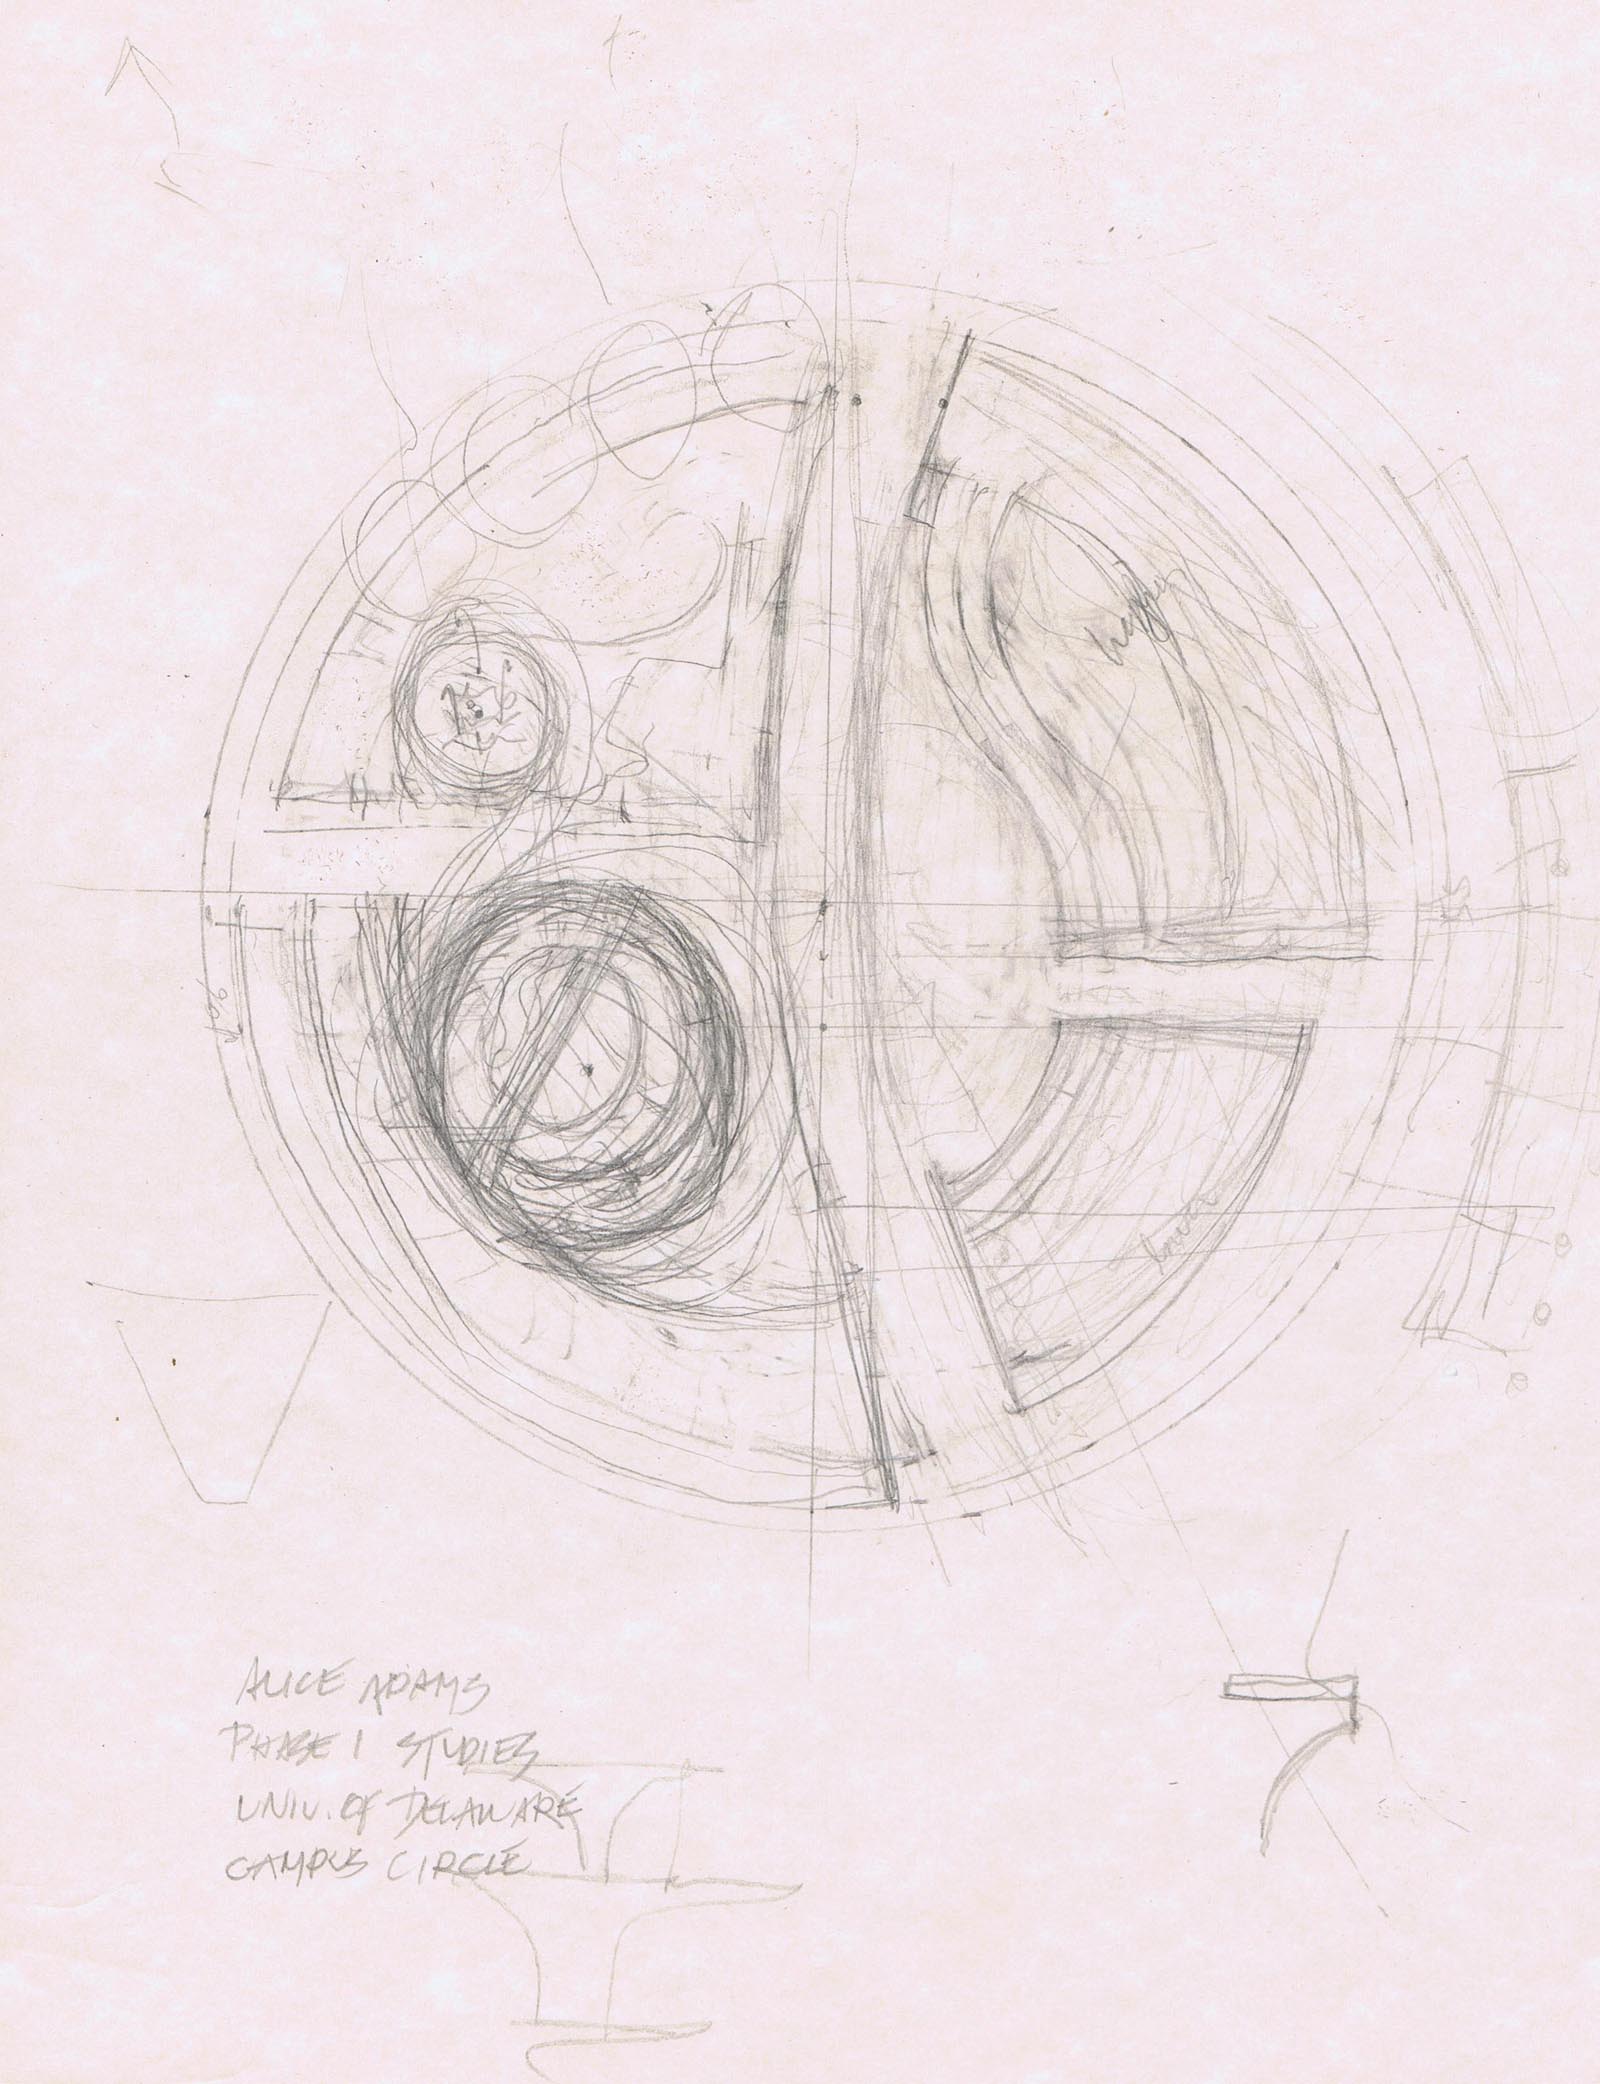 higher
lower
ALICE ADAMS
PHASE 1 STUDIES
UNIV. OF DELAWARE
CAMPUS CIRCLE